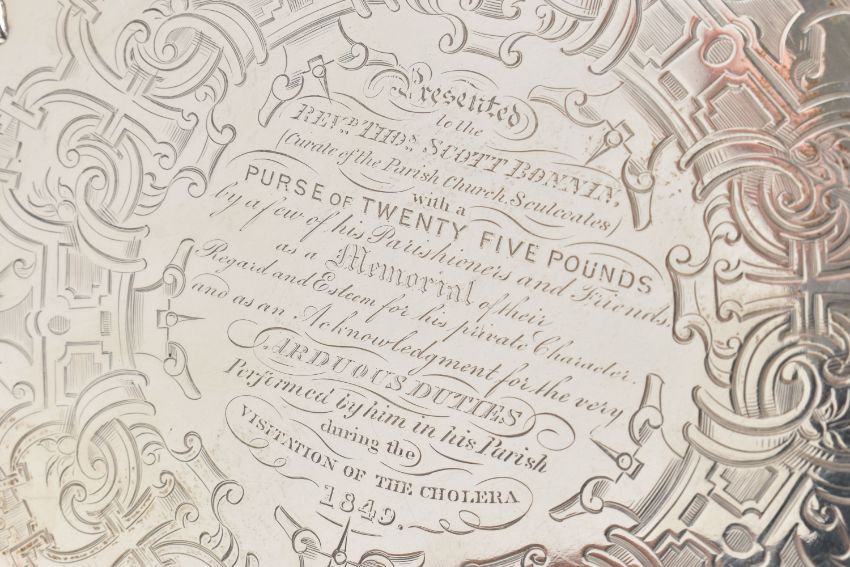 Presented
to the
REVD. THOS. SCOTT BONNIN,
(Curate of the Parish Church, Sculcoates)
with a
PURSE OF TWENTY FIVE POUNDS
by a few of his Parishioners and Friends.
as a Memorial of their
Regard and Esteem for his private Character.
and as an Acknowledgment for the very
ARDUOUS DUTIES
Performed by him in his Parish
during the
VISITATION OF THE CHOLERA
1849.